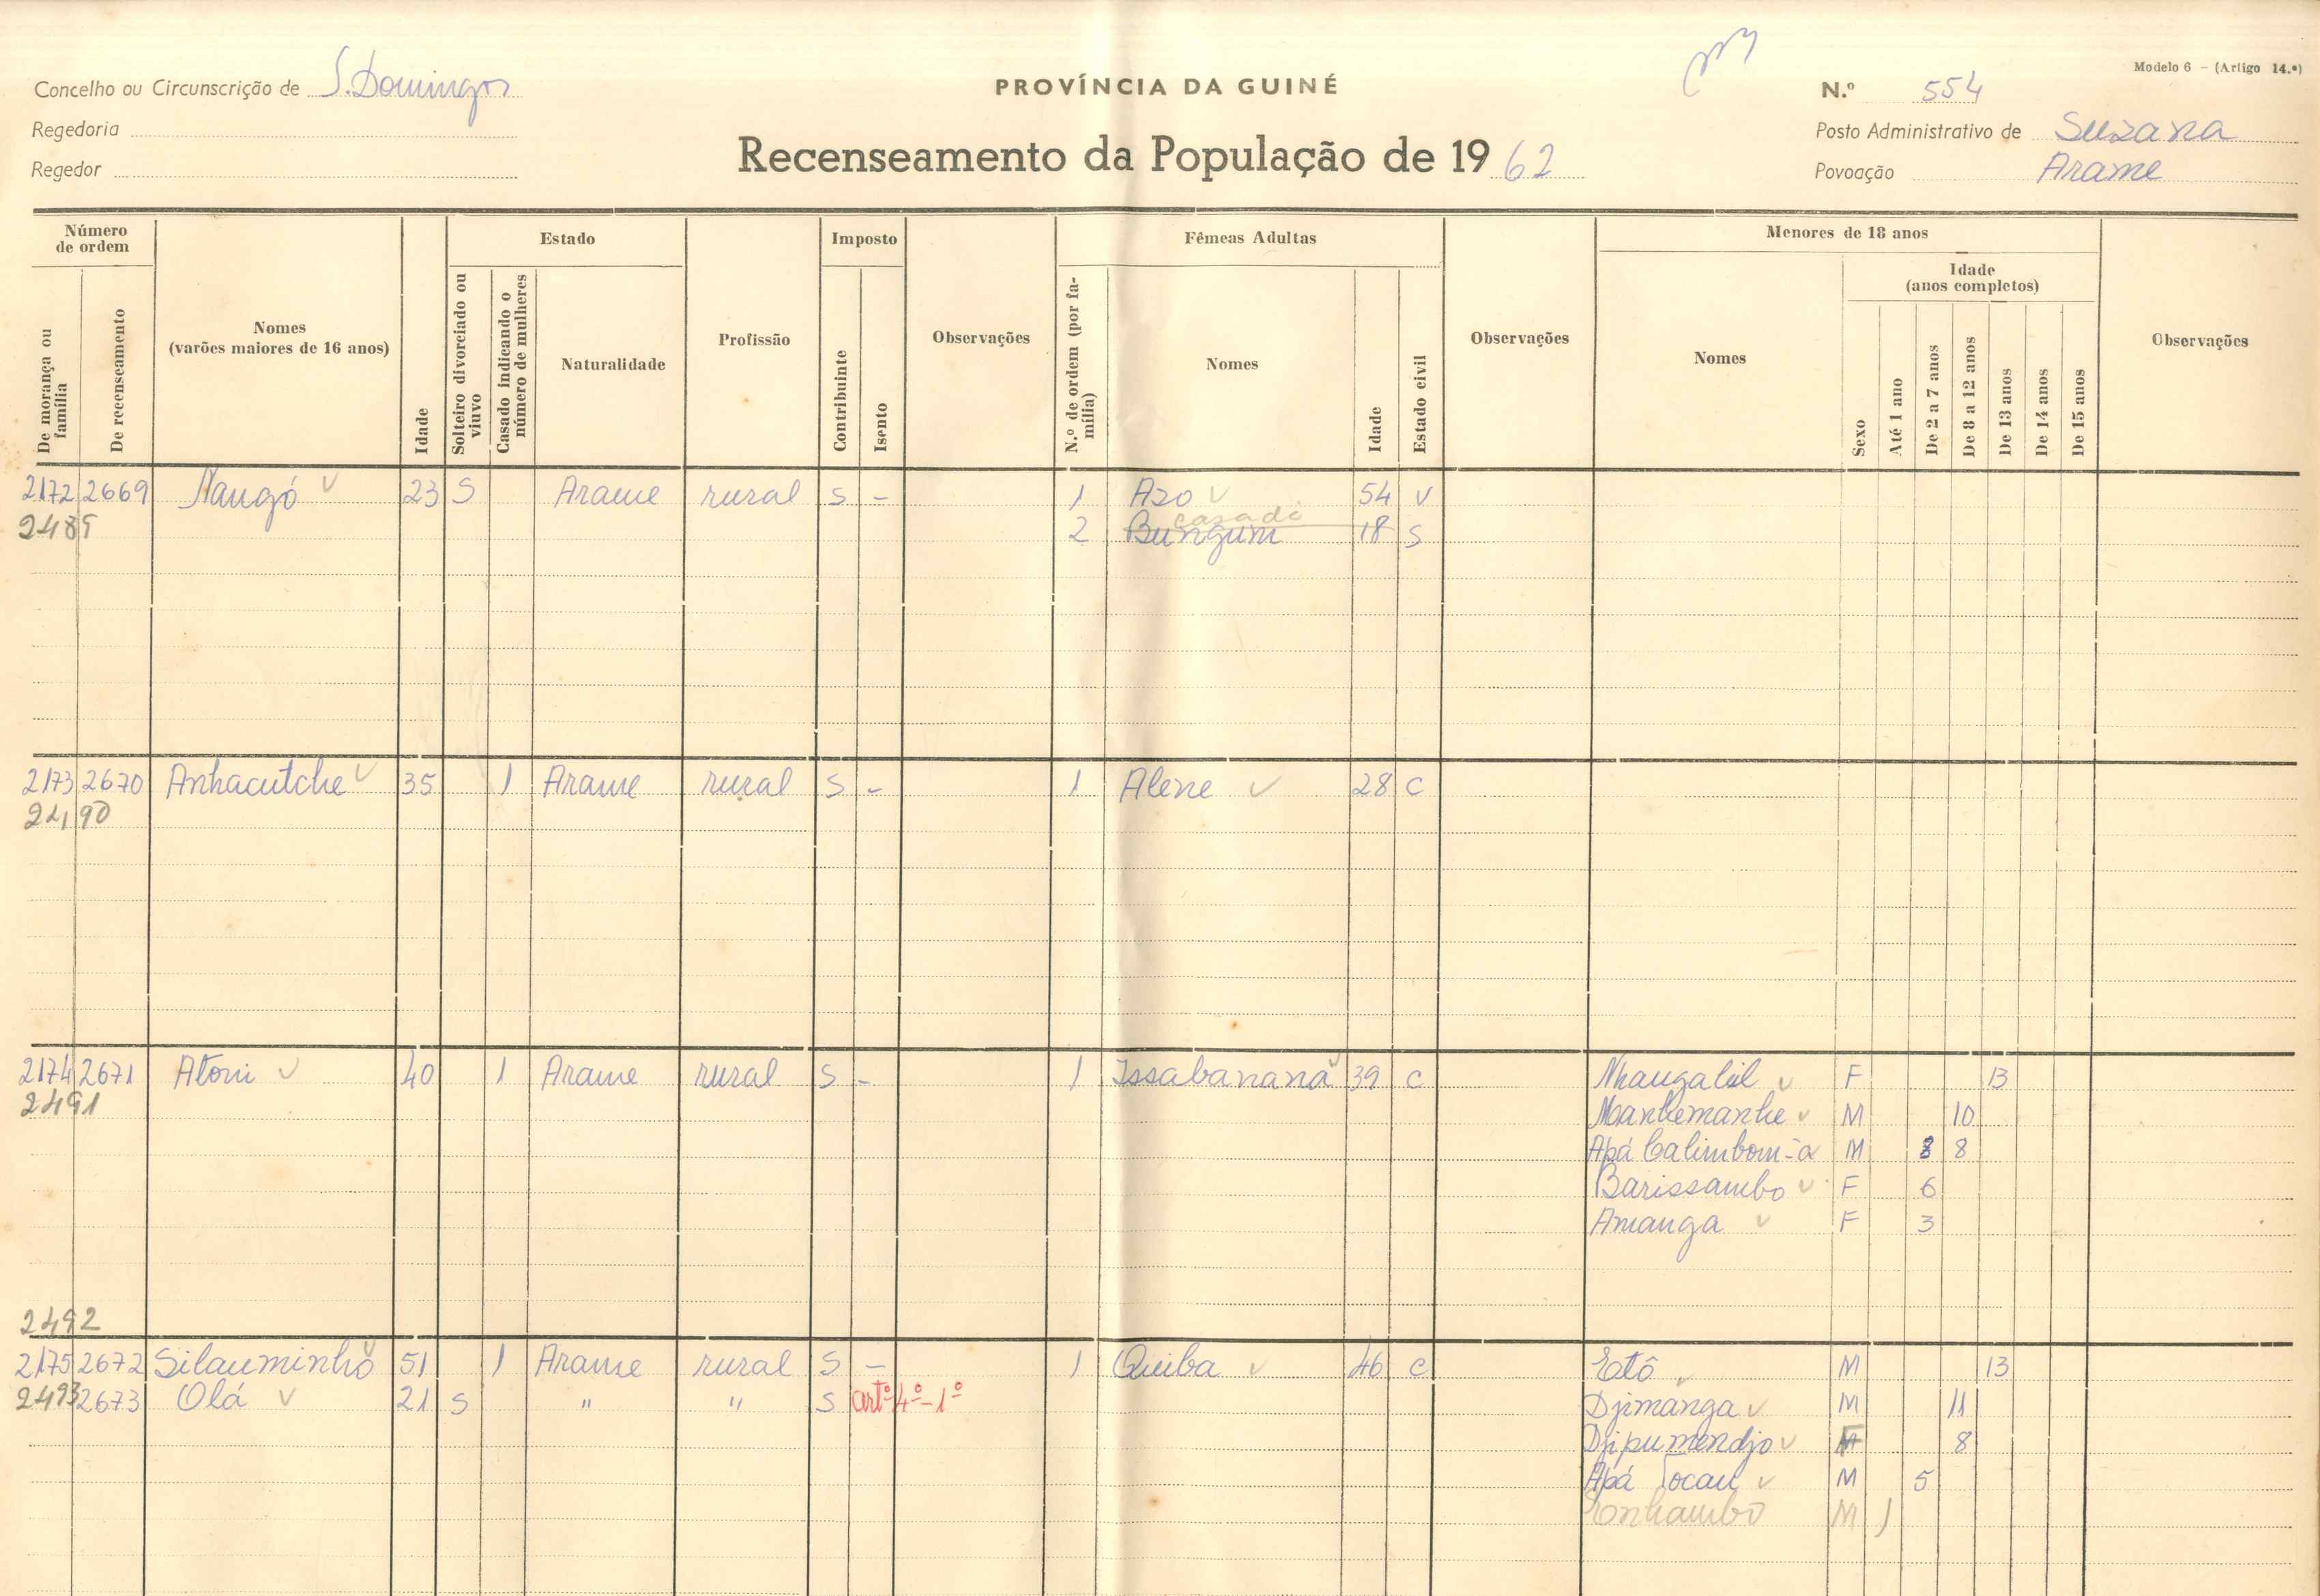 Modelo 6 – (Artigo 14.º)
Concelho ou Circunscrição de S. Domingos PROVÍNCIA DA GUINÉ N.º 554
Regedoria Posto Administrativo de Suzana
Regedor Recenseamento da População de 1962 Povoação Arame
Número de ordem
De morança ou família
De recenseamento
Nomes
(varões maiores de 16 anos)
Idade
Estado
Solteiro divorciado ou viuvo
Casado indicando o número de mulheres
Naturalidade
Profissão
Imposto
Contribuinte
Isento
Observações
Fêmeas Adultas
N.º de ordem (por família)
Nomes
Idade
Estado civil
Observações
Menores de 18 anos
Nomes
Sexo
Idade
(anos completos)
Até 1 ano
De 2 a 7 anos
De 8 a 12 anos
De 13 anos
De 14 anos
De 15 anos
Observações
2172 2669 Naugó 23 S Arame rural s - 1 Azo 54 v
2489 casada
2 Bungum 18 s
2173 2670 Anhacutche 35 1 Arame rural s - 1 Alene 28 c
2490
2174 2671 Atoni 40 1 Arame rural s - 1 Issabananá 39 c Nhaugalil F 13
2491 M 10
Apá Calimbom-a M 8 8
Barissambo F 6
Amanga F 3
2492
2175 2672 Silauminhô 51 1 Arame rural s - 1 Quiba 46 c Etô M 13
2493 2673 Olá 21 s " " s artº 4º-1º Djimanga M 11
Djipumendjo F 8
Apá Jocau M 5
Enhambo M 1